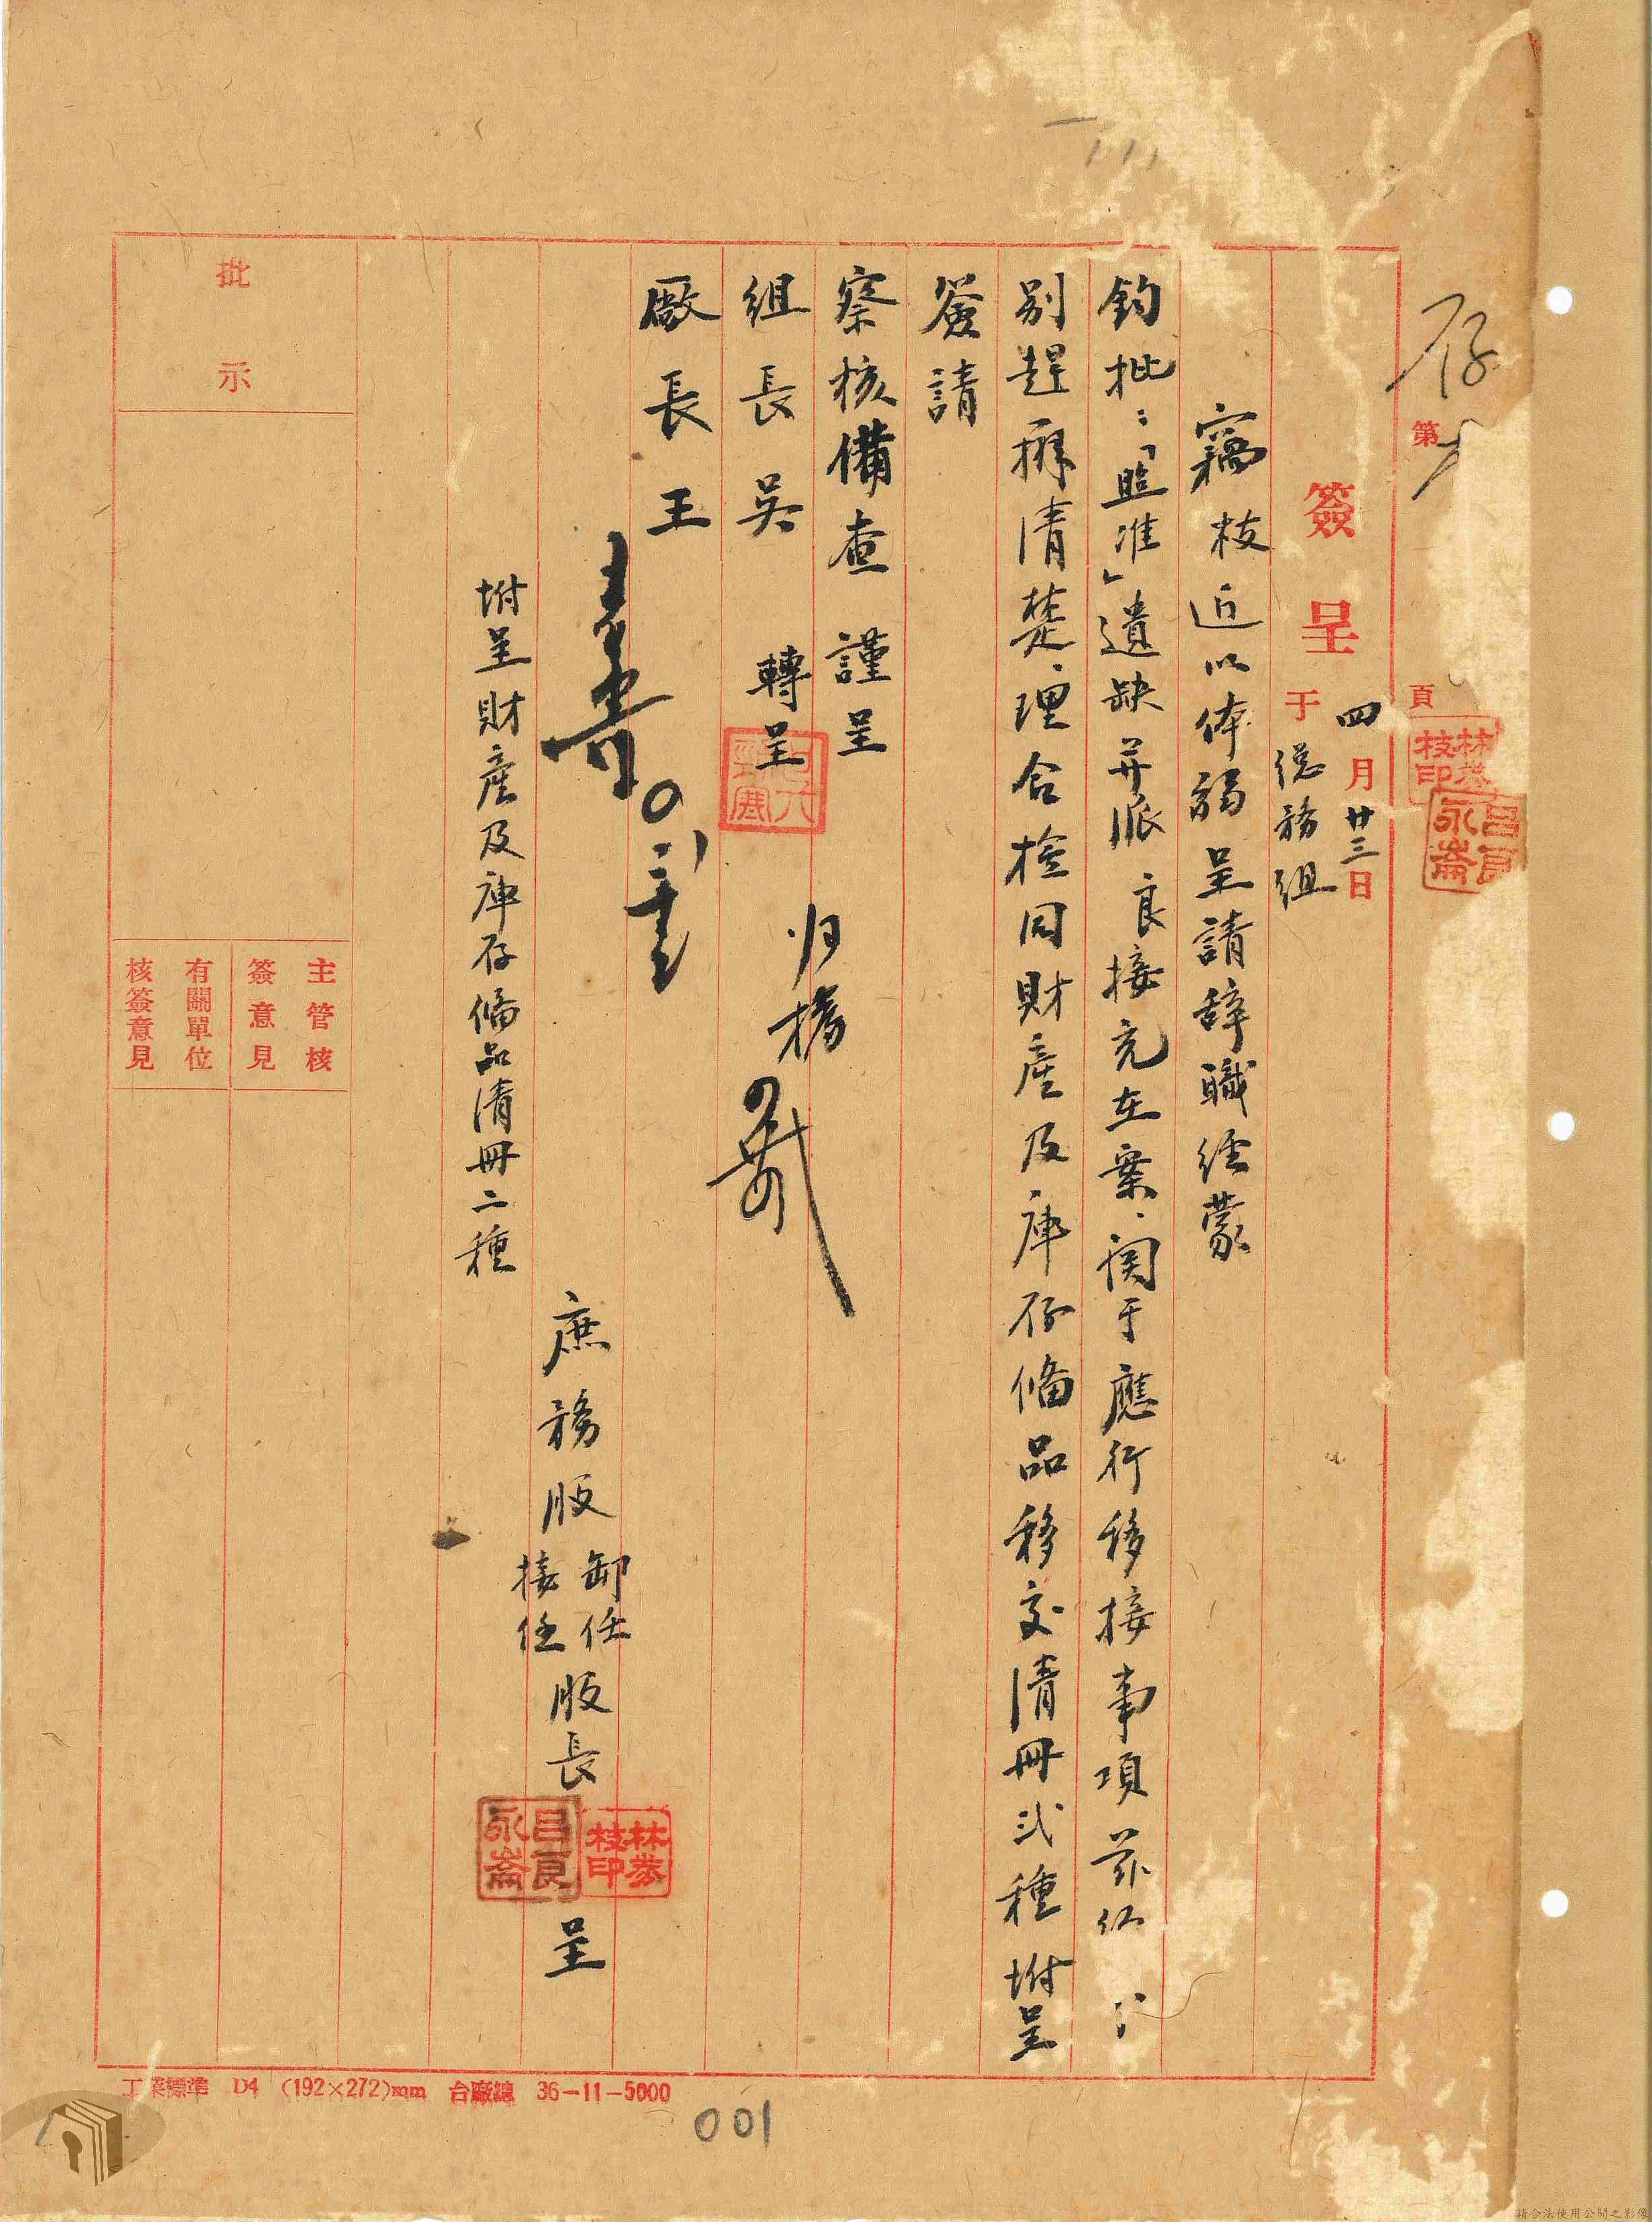 存
第
頁
簽呈
四月廿三日
于總務組
竊枝近以体弱呈請辞職経蒙
鈞批:「照准」遺缺并派良接充在案、関于應行移接事項茲
別趕辦清楚、理合捡同財產及庫存俻品移交清冊弍種坿呈
簽請
察核備查 謹呈
組長吳 轉呈
廠長王
归檔
坿呈財產及庫存俻品清冊二種
庶務股
卸任
接任
股長
林
枝印
呂良
永崙
呈
批示
主管核
簽意見
有關單位
核簽意見
工業標準 D4 (192×272)mm 台廠總 36-11-5000
001
請合法使用公開之影像